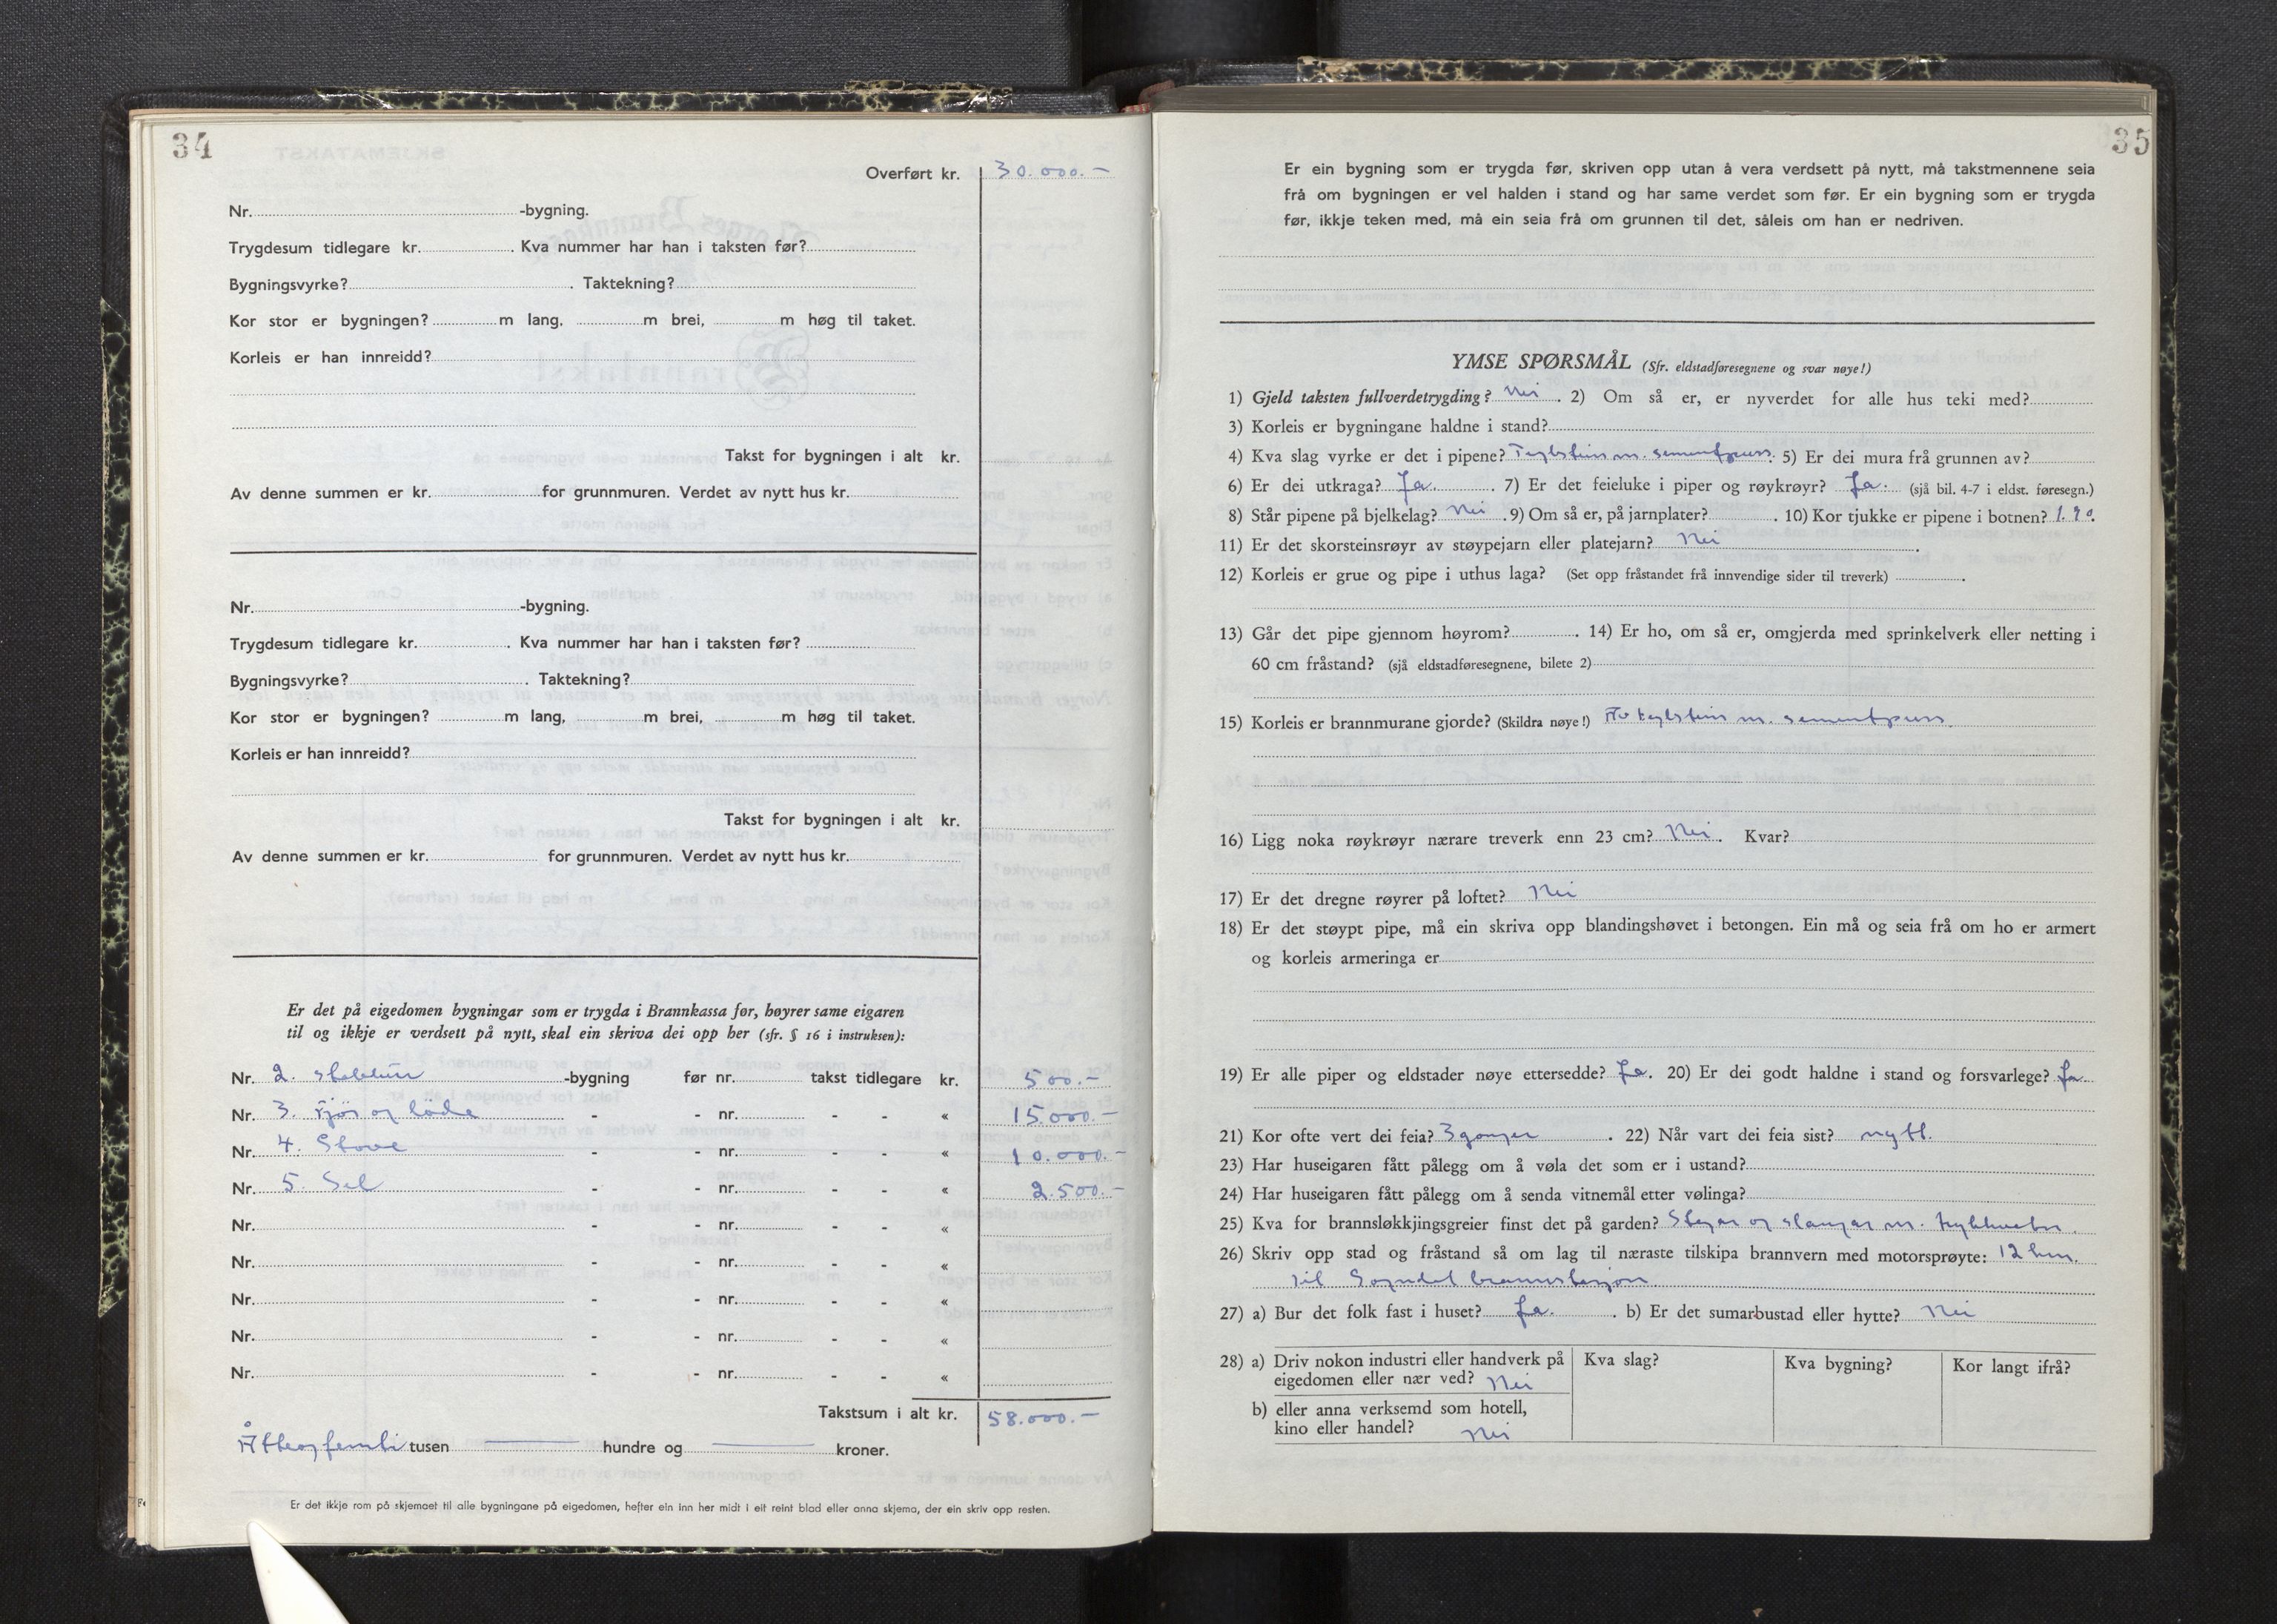 34
Overført kr. 30.000.-
Nr. -bygning.
Trygdesum tidlegare kr. . Kva nummer har han i taksten før?
Bygningsvyrke? . Taktekning?
Kor stor er bygningen? m lang, m brei, m høg til taket.
Korleis er han innreidd?
Takst for bygningen i alt kr.
Av denne summen er kr. for grunnmuren. Verdet av nytt hus kr.
Nr. -bygning.
Trygdesum tidlegare kr. . Kva nummer har han i taksten før?
Bygningsvyrke? . Taktekning?
Kor stor er bygningen? m lang, m brei, m høg til taket.
Korleis er han innreidd?
Takst for bygningen i alt kr.
Av denne summen er kr. for grunnmuren. Verdet av nytt hus kr.
Er det på eigedomen bygningar som er trygda i Brannkassa før, høyrer same eigaren
til og ikkje er verdsett på nytt, skal ein skriva dei opp her (sfr. § 16 i instruksen):
Nr. 2. stabbur -bygning før nr. takst tidlegare kr. 500.-
Nr. 3. Fjös og löda - - nr. - - « 15.000.-
Nr. 4. Stove - - nr. - - « 10.000.-
Nr. 5. Sel - - nr. - - « 2.500.-
Nr. - - nr. - - «
Nr. - - nr. - - «
Nr. - - nr. - - «
Nr. - - nr. - - «
Nr. - - nr. - - «
Takstsum i alt kr. 58.000.-
Åtteogfemti tusen — hundre og — kroner.
Er det ikkje rom på skjemaet til alle bygningane på eigedomen, hefter ein inn her midt i eit reint blad eller anna skjema, der ein skriv opp resten.
35
Er ein bygning som er trygda før, skriven opp utan å vera verdsett på nytt, må takstmennene seia
frå om bygningen er vel halden i stand og har same verdet som før. Er ein bygning som er trygda
før, ikkje teken med, må ein seia frå om grunnen til det, såleis om han er nedriven.
YMSE SPØRSMÅL (Sfr. eldstadføresegnene og svar nøye!)
1) Gjeld taksten fullverdetrygding? Nei . 2) Om så er, er nyverdet for alle hus teki med?
3) Korleis er bygningane haldne i stand?
4) Kva slag vyrke er det i pipene? Teglstein m. sementpuss. 5) Er dei mura frå grunnen av?
6) Er dei utkraga? Ja. . 7) Er det feieluke i piper og røykrøyr? Ja. (sjå bil. 4-7 i eldst. føresegn.)
8) Står pipene på bjelkelag? Nei . 9) Om så er, på jarnplater? . 10) Kor tjukke er pipene i botnen?
11) Er det skorsteinsrøyr av støypejarn eller platejarn? Nei .
12) Korleis er grue og pipe i uthus laga? (Set opp fråstandet frå innvendige sider til treverk) .
13) Går det pipe gjennom høyrom? . 14) Er ho, om så er, omgjerda med sprinkelverk eller netting i
60 cm fråstand? (sjå eldstadføresegnene, bilete 2)
15) Korleis er brannmurane gjorde? (Skildra nøye!) Av teglstein m. sementpuss.
16) Ligg noka røykrøyr nærare treverk enn 23 cm? Nei . Kvar?
17) Er det dregne røyrer på loftet? Nei
18) Er det støypt pipe, må ein skriva opp blandingshøvet i betongen. Ein må og seia frå om ho er armert
og korleis armeringa er
19) Er alle piper og eldstader nøye ettersedde? Ja. 20) Er dei godt haldne i stand og forsvarlege? Ja.
21) Kor ofte vert dei feia? 3 ganger . 22) Når vart dei feia sist? nytt.
23) Har huseigaren fått pålegg om å vøla det som er i ustand?
24) Har huseigaren fått pålegg om å senda vitnemål etter vølinga?
25) Kva for brannsløkkjingsgreier finst det på garden? Stigar og slangar m. trykkvatn.
26) Skriv opp stad og fråstand så om lag til næraste tilskipa brannvern med motorsprøyte: 12 km.
til Sogndal brannstasjon
27) a) Bur det folk fast i huset? Ja. . b) Er det sumarbustad eller hytte? Nei
28) a) Driv nokon industri eller handverk på Kva slag? Kva bygning? Kor langt ifrå?
eigedomen eller nær ved? Nei
b) eller anna verksemd som hotell,
kino eller handel? Nei